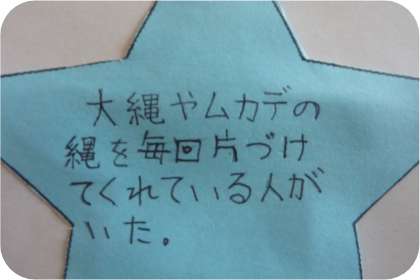 大縄やムカデの
縄を毎回片づけ
てくれている人が
いた。